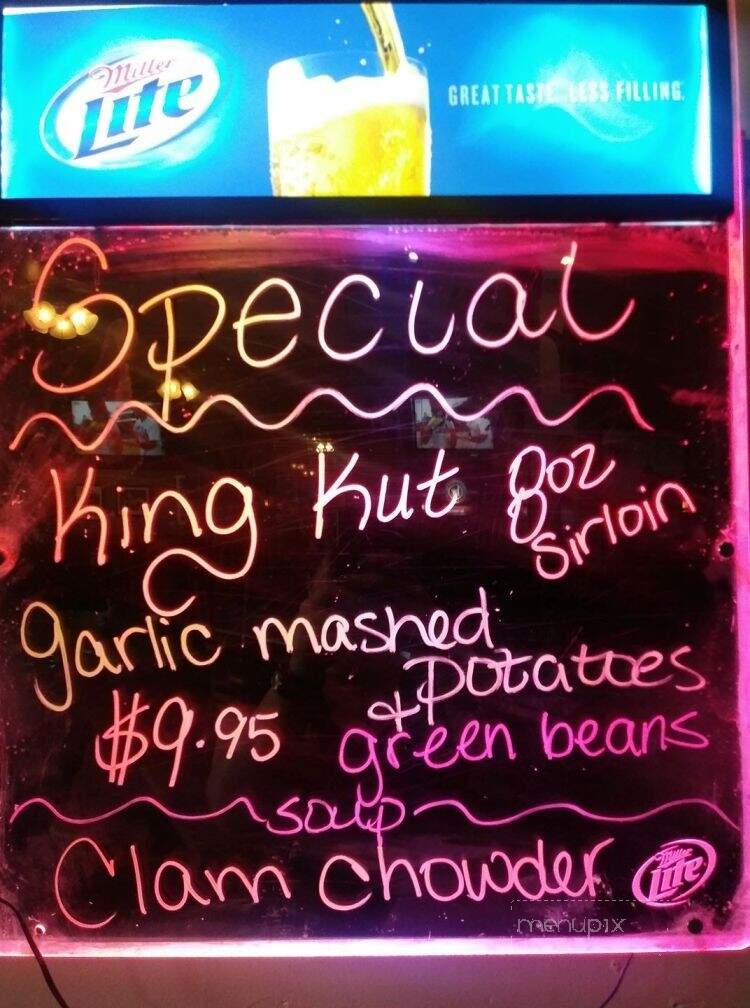 Miller
Lite
GREAT TASTE. LESS FILLING.
Special
King Kut 8oz
Sirloin
garlic mashed
potatoes
$9.95 & green beans
soup
Clam Chowder
Miller
Lite
menupix